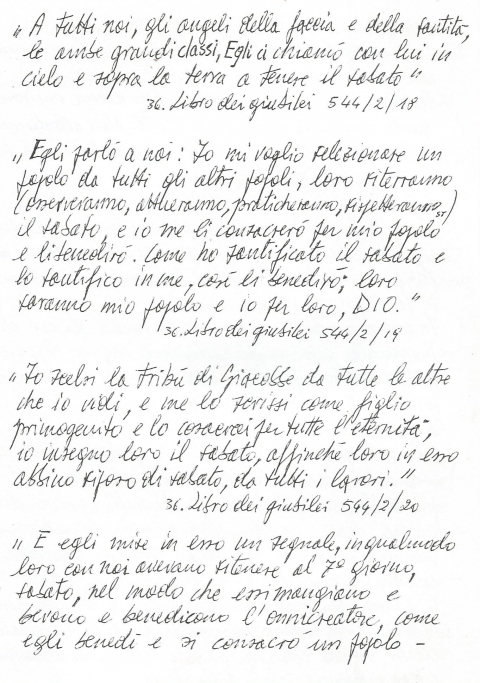 „ A tutti noi, gli angeli della faccia e della santità,
le ambe grandi classi, Egli ci chiamò con lui in
cielo e sopra la terra a tenere il sabato “
36. Libro dei giubilei 544/2/18
„ Egli parlò a noi: Io mi voglio selezionare un
popolo da tutti gli altri popoli, loro riterranno
(osserveranno, atteranno, praticheranno, rispetteranno, ST)
il sabato, e io me li consacrerò per mio popolo
e li benedirò. Come ho santificato il sabato e
lo santifico in me, così li benedirò; loro
saranno mio popolo e io per loro, DIO.“
36. Libro dei giubilei 544/2/19
„ Io scelsi la tribù di Giacobbe da tutte le altre
che io vidi, e me lo scrissi come figlio
primogenito e lo consacrai per tutte l'eternità,
io insegno loro il sabato, affinché loro in esso
abbino riposo di sabato, da tutti i lavori.“
36. Libro dei giubilei 544/2/20
„ E egli mise in esso un segnale, in qual modo
loro con noi avevano ritenere al 7º giorno,
sabato, nel modo che essi mangiano e
bevono e benedicono l'onnicreatore, come
egli benedì e si consacrò un popolo –